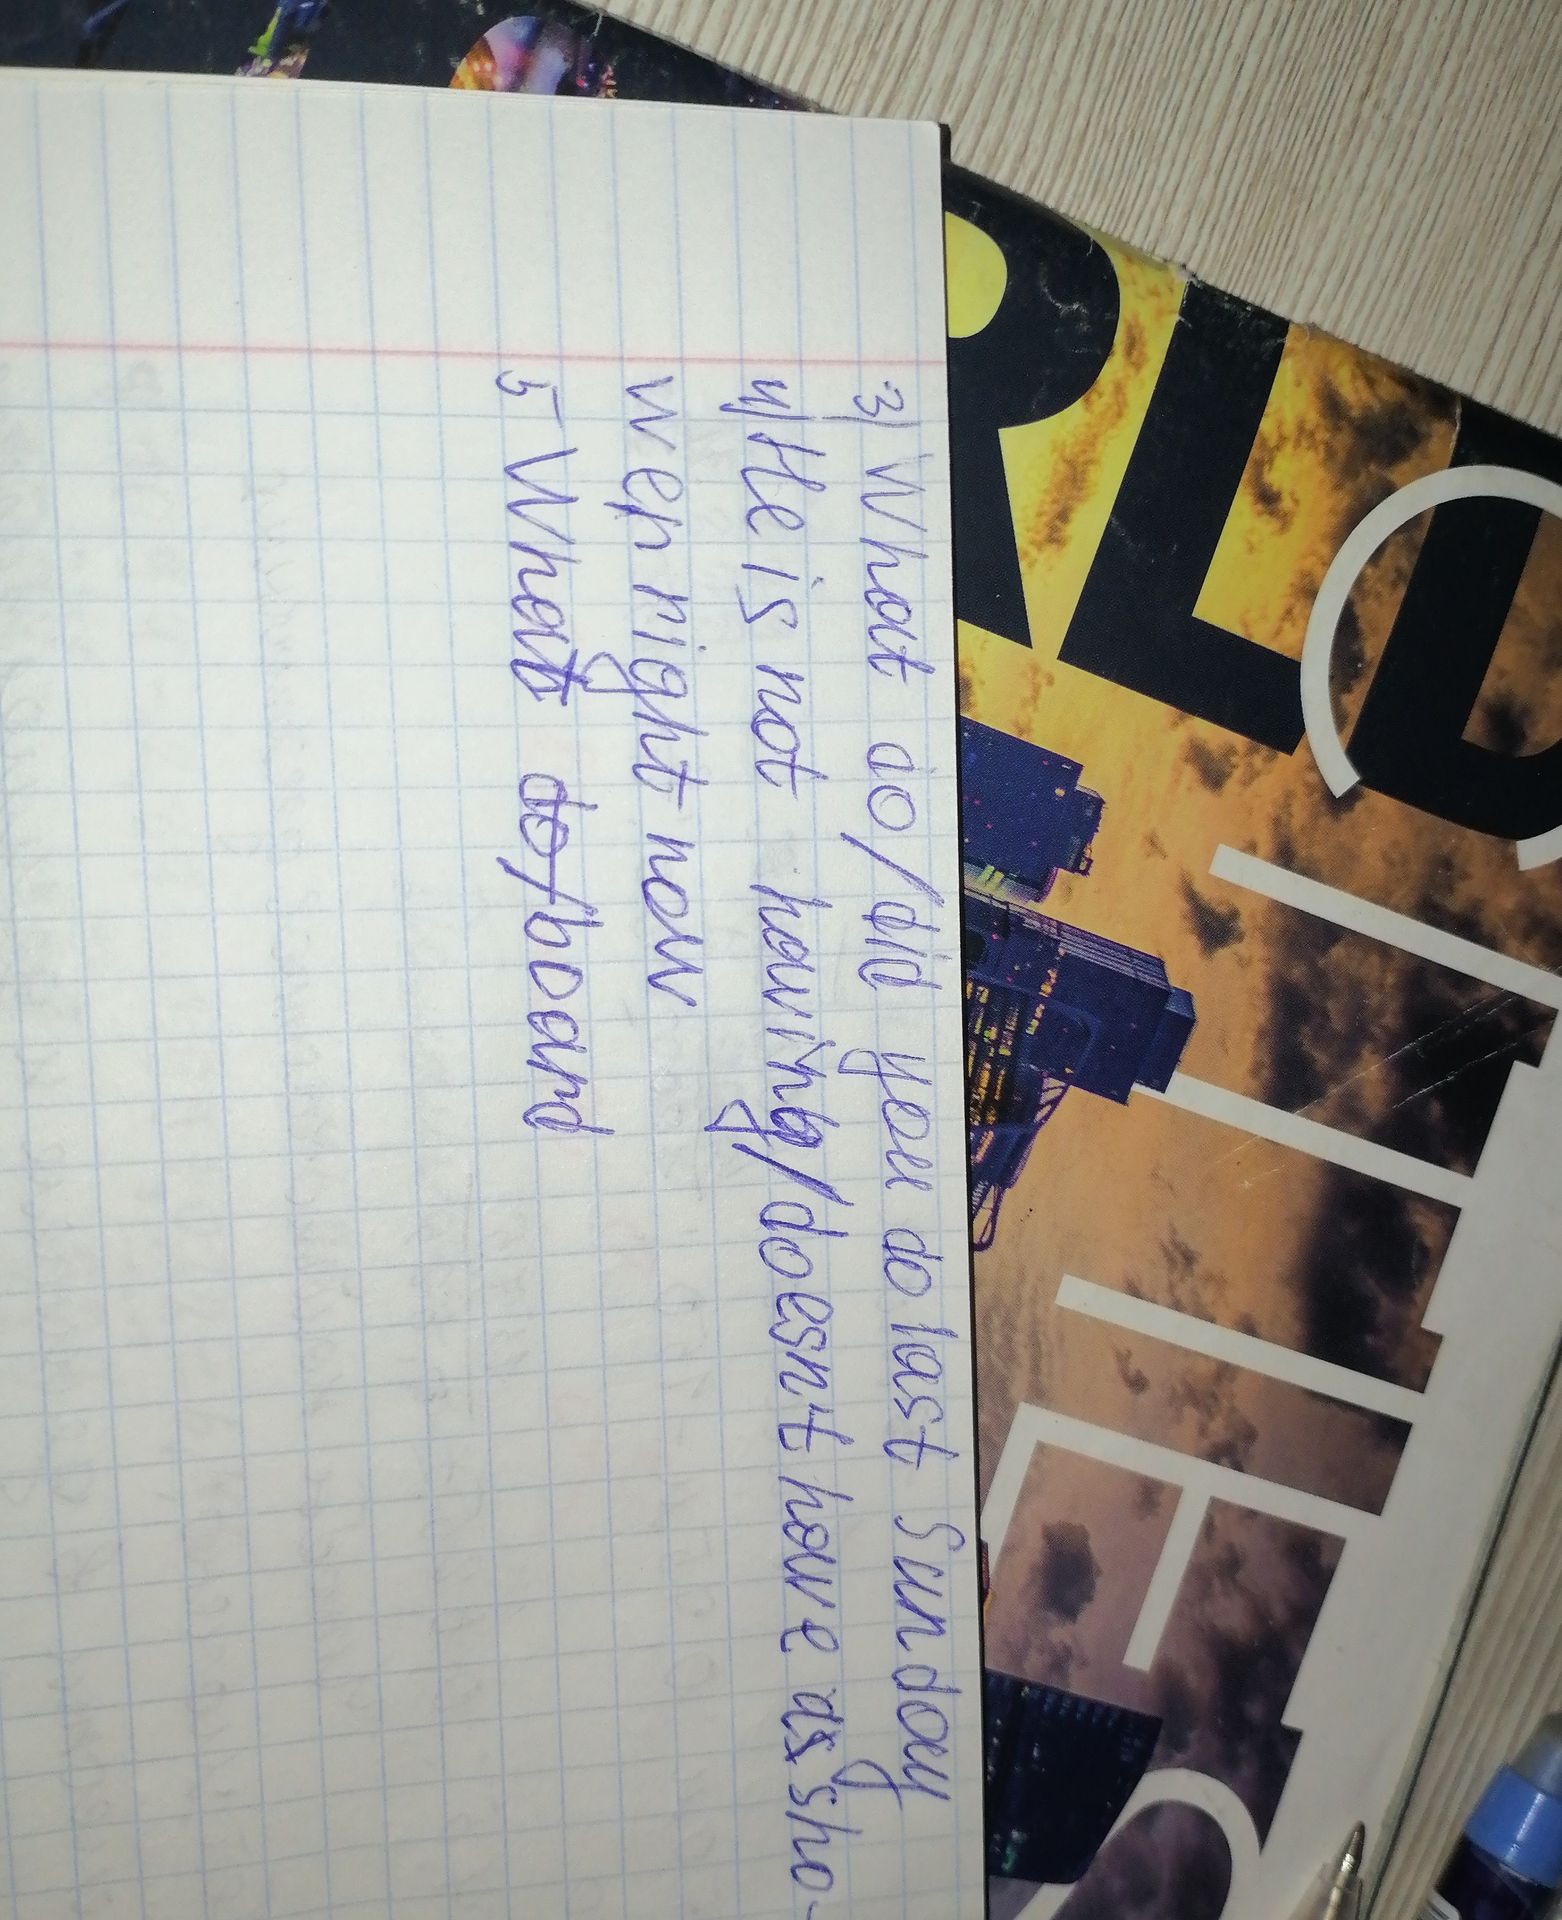 3) What do/did you do last Sunday
4) He is not having/doesn't have a sho-
wer right now
5 What do/board